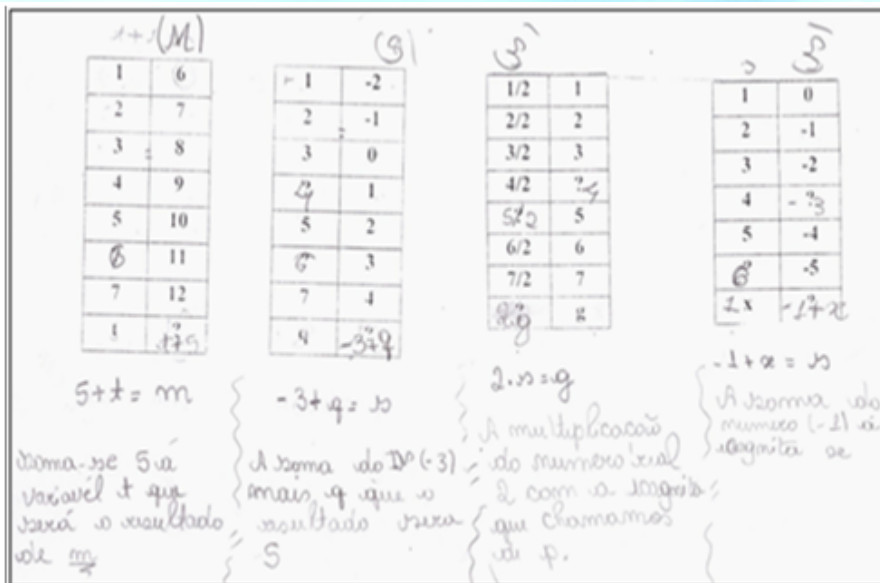 (M)
1 6
2 7
3 8
4 9
5 10
6 11
7 12
t t+5
5+t = m
soma-se 5 a
variavél t que
será o resultado
de m
(S)
1 -2
2 -1
3 0
4 1
5 2
6 3
7 4
q -3+q
-3+q = s
A soma do Nº (-3)
mais q que o
resultado sera
S
(s)
1/2 1
2/2 2
3/2 3
4/2 4
5/2 5
6/2 6
7/2 7
g
2.s=g
A multiplicação
do numero real
2 com a icognita
que chamamos
de p.
(s)
1 0
2 -1
3 -2
4 -3
5 -4
6 -5
x -1+x
-1+x = s
A soma do
numero (-1) a
icognita